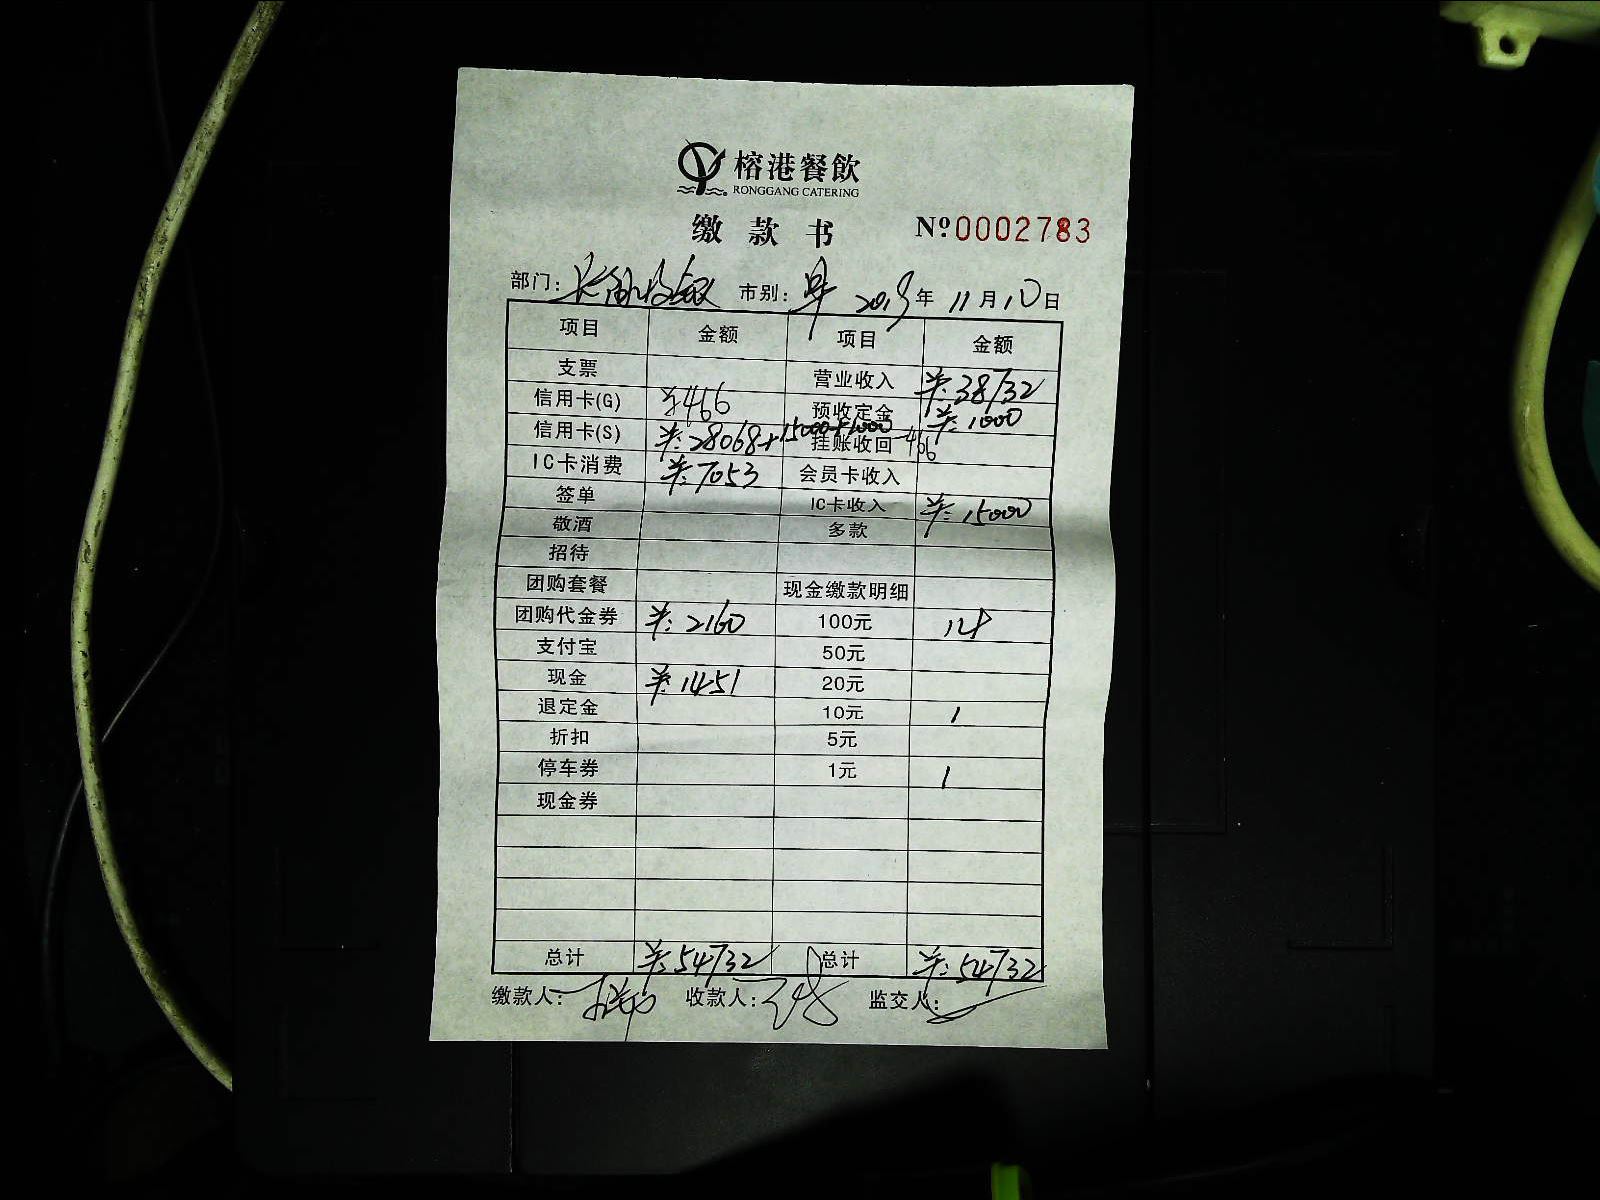 榕港餐飲
RONGGANG CATERING
缴款书 Nº0002783
部门: 市别: 早 2019年 11月10日
项目 金额 项目 金额
支票 营业收入 ¥:38732
信用卡(G) ¥466 预收定金 ¥:1000
信用卡(S) ¥:28068+15000+1000-466 挂账收回
IC卡消费 ¥:7053 会员卡收入
签单 IC卡收入 ¥:15000
敬酒 多款
招待
团购套餐 现金缴款明细
团购代金券 ¥:2160 100元 14
支付宝 50元
现金 ¥:1451 20元
退定金 10元 1
折扣 5元
停车券 1元 1
现金券
总计 ¥:54732 总计 ¥:54732
缴款人: 收款人: 监交人: